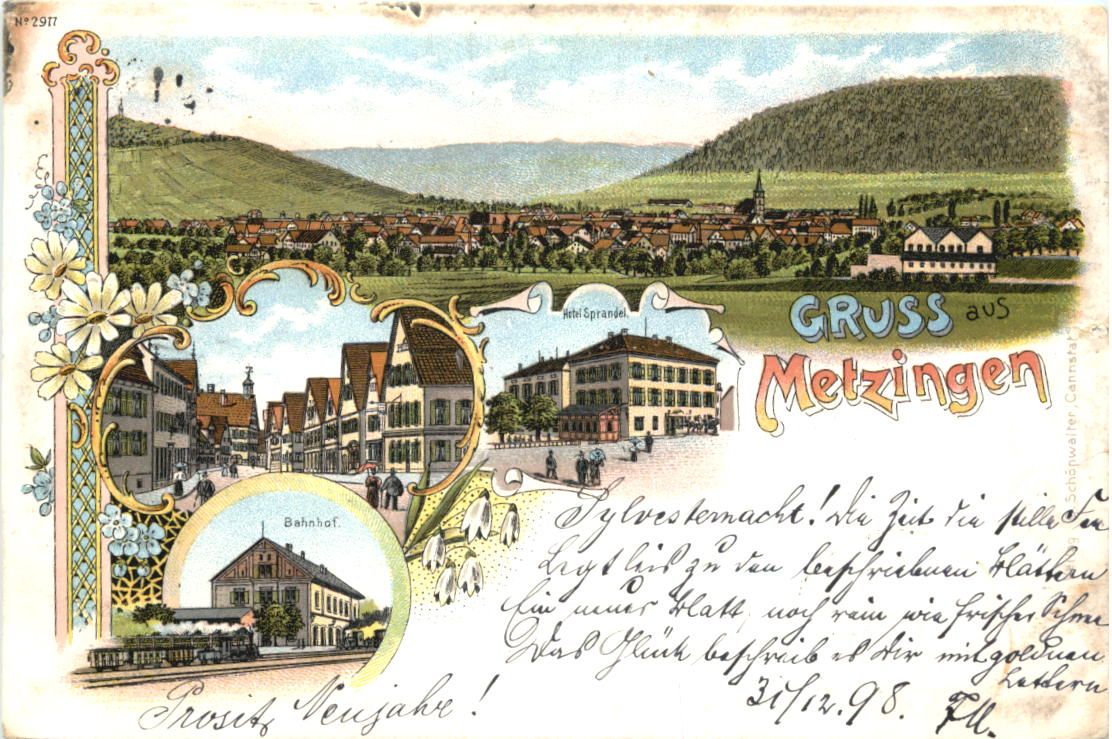 No 2917
Hotel Sprandel.
GRUSS aus
Metzingen
Bahnhof.
Schönwalter, Cannstatt
Sylvesternacht! Die Zeit die stille Frau
Legt leis zu den beschriebnen Blättern
Ein neues Blatt, noch rein wie frischer Schnee
Das Glück beschreib es dir mit goldnen
Lettern
31/12.98.
Prosit Neujahr!